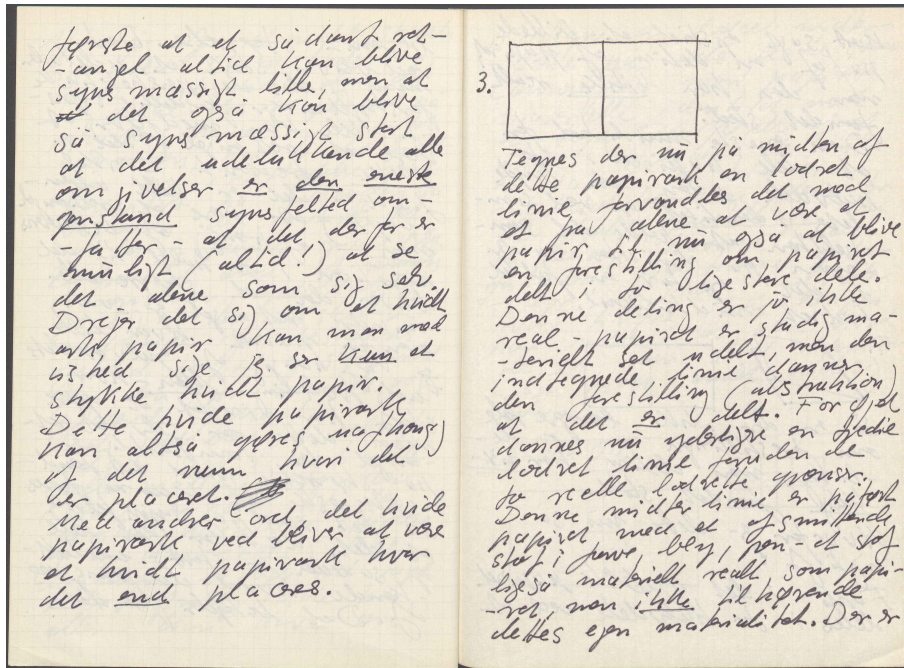 første at et sådant rek-
-angel altid kan blive
synsmæssigt lille, men at
det også kan blive
så synsmæssigt stort
at det udelukkende alle
omgivelser er den eneste
genstand synsfeltet om-
-fatter - at det derfor er
muligt (altid!) at se
det alene som sig selv.
Drejer det sig om et hvidt
ark papir kan man med
vished sige jeg ser kun et
stykke hvidt papir.
Dette hvide papirark
kan altså gøres uafhængig
af det rum hvori det
er placeret.
Med andre ord, det hvide
papirark ved bliver at være
et hvidt papirark hvor
det end placeres.
3.
Tegnes der nu på midten af
dette papirark en lodret
linie forvandles det mod
et fra alene at være et
papir til nu også at blive
en forestilling om papiret
delt i to ligestore dele.
Denne deling er jo ikke
real - papiret er stadig ma-
-terielt set udelt, men den
indtegnede linie danner
den forestilling (abstraktion)
at det er delt. For øjet
dannes nu yderligere en tredie
lodret linie foruden de
to reelle lodrette grænser.
Denne midterlinie er påført
papiret med et afsmittende
stof i farve, bly, pen et stof
ligeså materielt realt som papi-
-ret, men ikke tilhørende
dettes egen materialitet. Der er